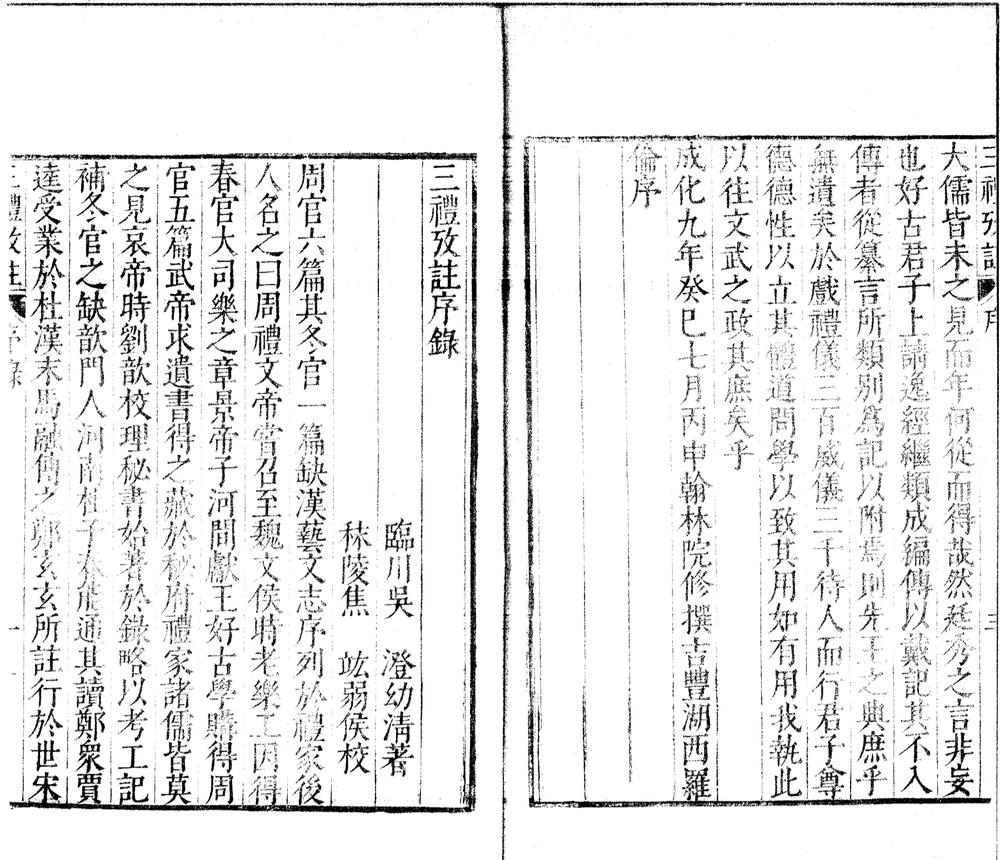 三禮攷註 序 三
大儒皆未之見而年何從而得哉然廷秀之言非妄
也好古君子上請逸經繼類成編傳以戴記其不入
傳者從纂言所類別爲記以附焉則先王之典庶乎
無遺矣於戲禮儀三百威儀三千待人而行君子尊
德德性以立其體道問學以致其用如有用我執此
以往文武之政其庶矣乎
成化九年癸巳七月丙申翰林院修撰吉豐湖西羅
倫序
三禮攷註序錄
臨川吳 澄幼淸著
秣陵焦 竑弱侯校
周官六篇其冬官一篇缺漢藝文志序列於禮家後
人名之曰周禮文帝嘗召至魏文侯時老樂工因得
春官大司樂之章景帝子河間獻王好古學購得周
官五篇武帝求遺書得之藏於秘府禮家諸儒皆莫
之見哀帝時劉歆校理秘書始著於錄略以考工記
補冬官之缺歆門人河南杜子春能通其讀鄭衆賈
逵受業於杜漢末馬融傳之鄭玄玄所註行於世宋
三禮攷註 序錄 一